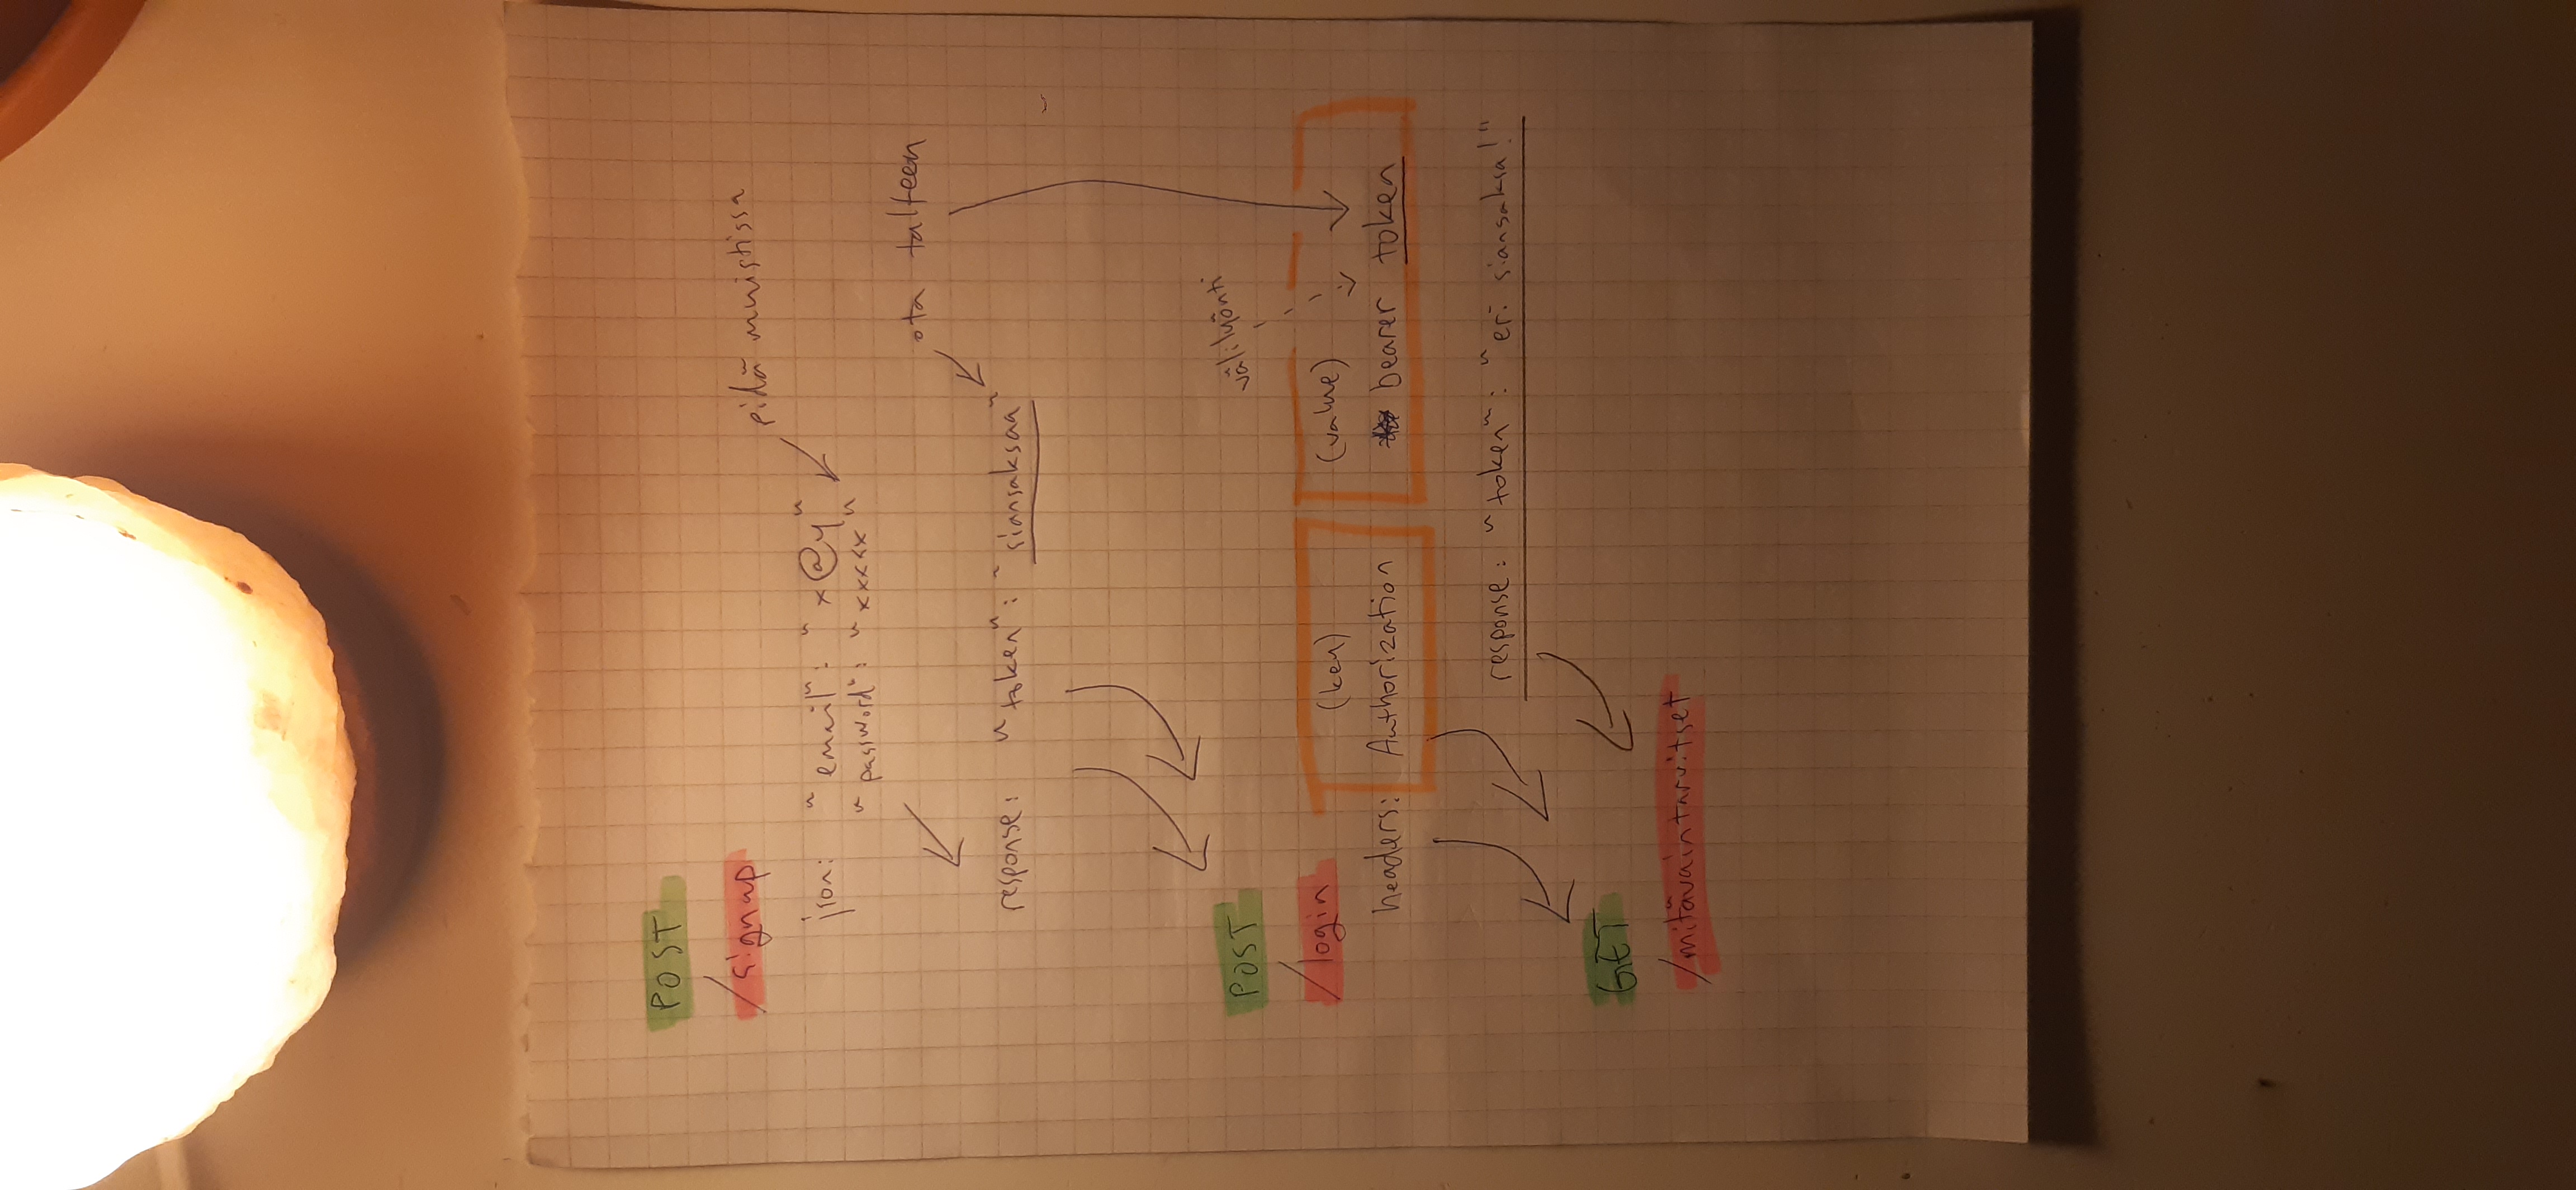 POST
/signup
pidä muistissa
json: "email": "x@y"
"password": "xxxxx"
ota talteen
response: "token": "siansaksaa"
POST
välilyönti
/login
(key) (value)
headers: Authorization bearer token
response: "token": "eri siansaksa!"
GET
/mitävaintarvitset